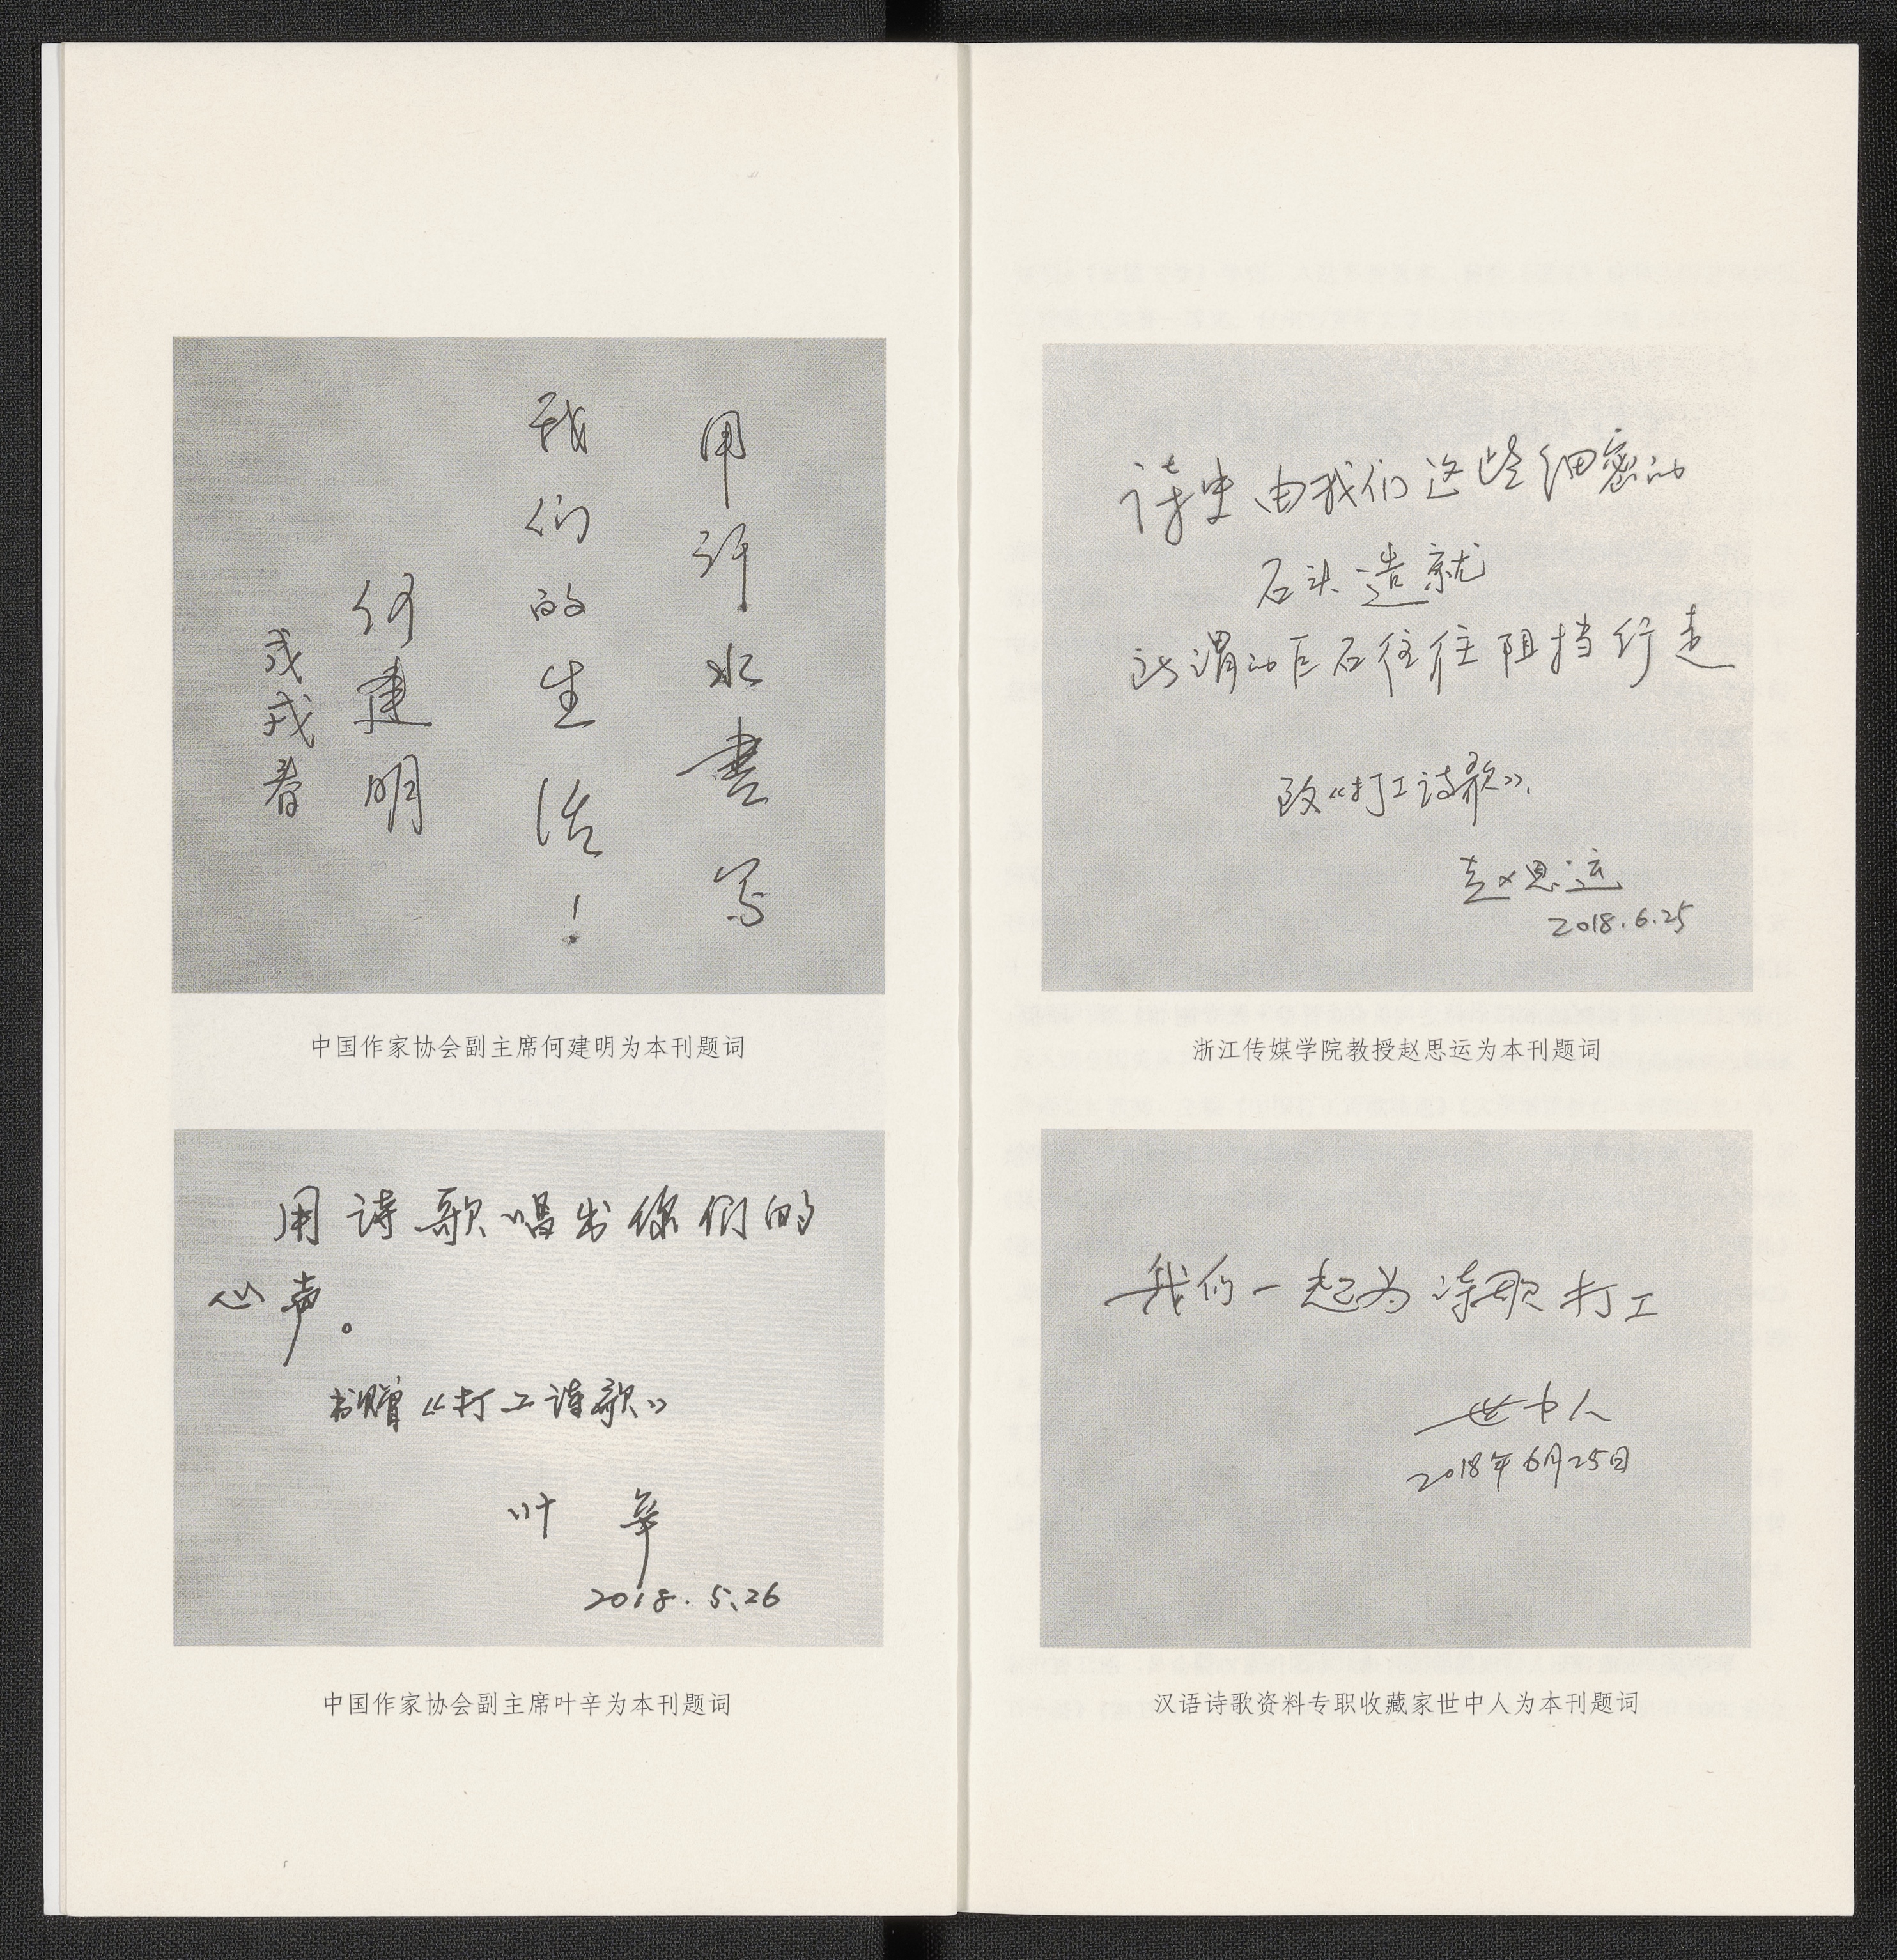 用汗水書写
我们的生活！
何建明
戊戌春
中国作家协会副主席何建明为本刊题词
用诗歌唱出你们的
心声。
书赠《打工诗歌》
叶辛
2018.5.26
中国作家协会副主席叶辛为本刊题词
诗史由我们这些细密的
石头造就
所谓的巨石往往阻挡行走
致《打工诗歌》.
赵思运
2018.6.25
浙江传媒学院教授赵思运为本刊题词
我们一起为诗歌打工
世中人
2018年6月25日
汉语诗歌资料专职收藏家世中人为本刊题词